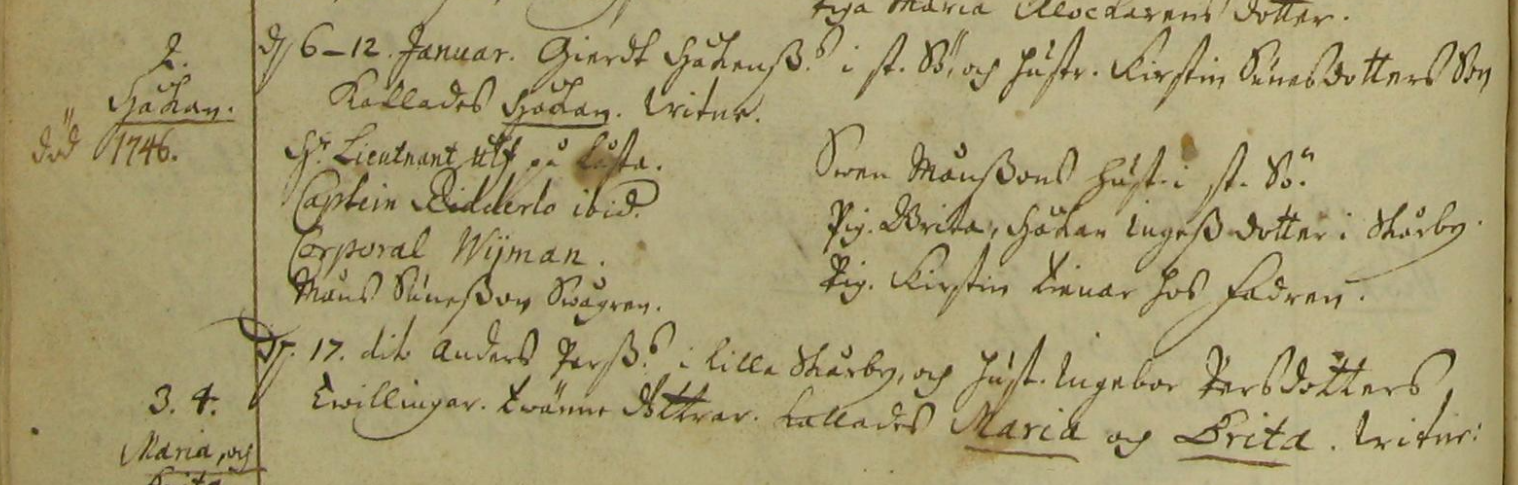 Piga Maria Klockarens dotter.
2.
Håkan.
död 1746.
d. 6–12. Januar. Gierdt Håkenß. i st. Sö, och hustr. Kirstin Sunesdotters Son
Kallades Håkan. Witne.
Hr. Lieutnant Ulf på
Captein Ridderlo ibid.
Corporal Wijman.
Måns Suneßon Swågren.
Swen Månßons hust. i st. Sö.
Pig. Brita, Håkan Ingeß dotter i Skårby.
Pig. Kirstin tienar hos Fadren.
D. 17. dito Anders Perß. i lilla Skårby, och hust. Ingebor Persdotters
Twillingar. twänne döttrar. kallades Maria och Brita. Witne:
3. 4.
Maria, och
Brita